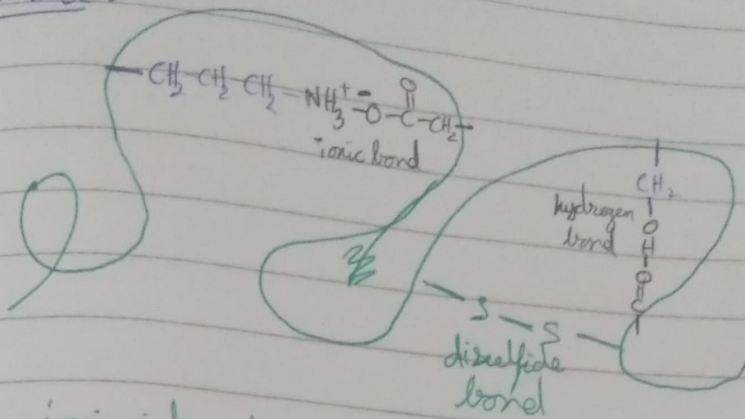 CH₂ CH₂ CH₂ - NH₃⁺ ⁻O - C - CH₂ -
O
ionic bond
CH₂
hydrogen
bond
O
H
O
C
S - S
disulfide
bond